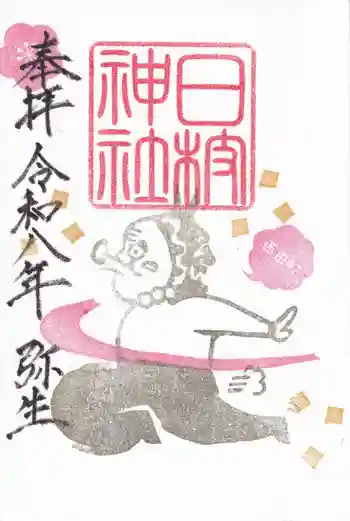 奉拝 令和八年 弥生
日枝
神社
西田町